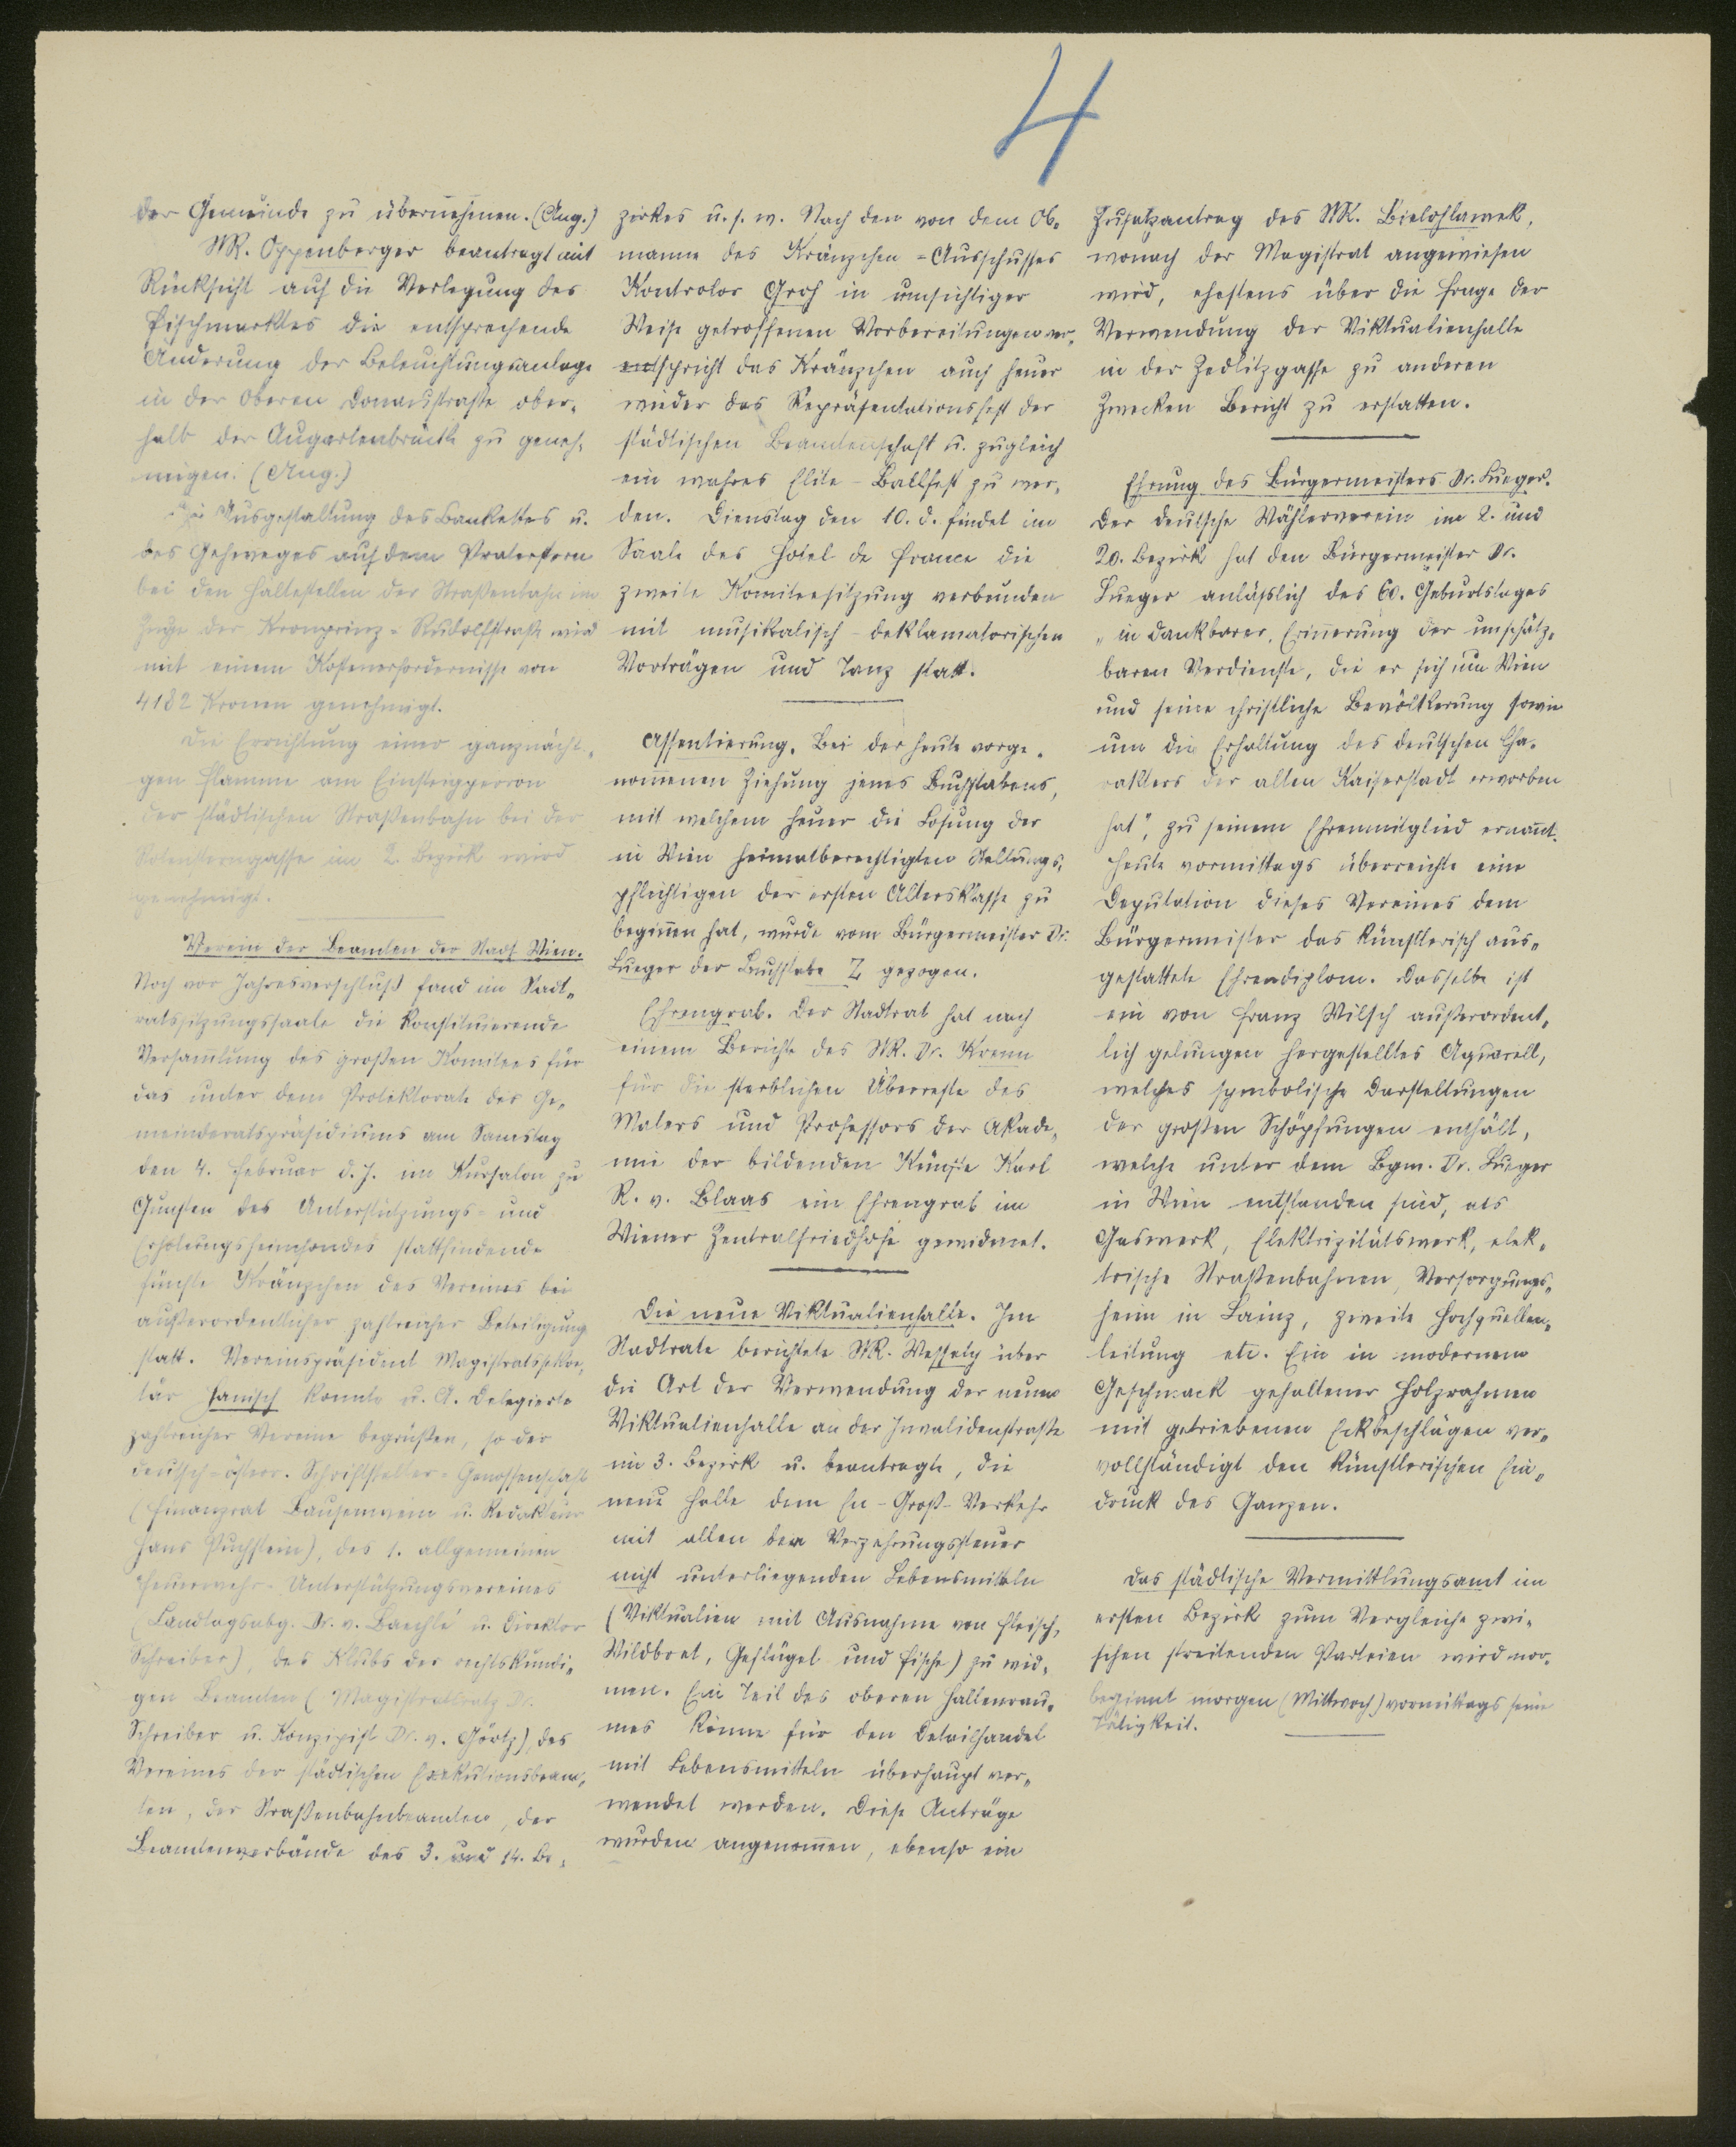 4
der Gemeinde zu übernehmen. (Ang.)
StR. Oppenberger beantragt mit
Rücksicht auf die Verlegung des
Fischmarktes die entsprechende
Änderung der Beleuchtungsanlage
in der Oberen Donaustraße ober-
halb der Augartenbrücke zu geneh-
migen. (Ang.)
Die Ausgestaltung des Bankettes u.
des Gehweges auf dem Praterstern
bei den Haltestellen der Straßenbahn im
Zuge der Kronprinz-Rudolfstraße wird
mit einem Kostenerfordernisse von
4182 Kronen genehmigt.
Die Errichtung einer ganznächti-
gen Flamme am Einsteigperron
der städtischen Straßenbahn bei der
Rotensterngasse im 2. Bezirk wird
genehmigt.
Verein der Beamten der Stadt Wien.
Noch vor Jahresverschluß fand im Stadt-
ratssitzungssaale die konstituierende
Versam̅lung des großen Komitees für
das unter dem Protektorate des Ge-
meinderatspräsidiums am Samstag
den 4. Februar d. J. im Kursalon zu
Gunsten des Unterstützungs- und
Erholungsheimfondes stattfindende
fünfte Kränzchen des Vereines bei
außerordentlicher zahlreicher Beteiligung
statt. Vereinspräsident Magistratssekre-
tär Hanisch konnte u. A. Delegierte
zahlreicher Vereine begrüßen, so der
deutsch-österr. Schriftsteller-Genossenschaft
(Finanzrat Bausenwein u. Redakteur
Hans Puchstein), des 1. allgemeinen
Feuerwehr-Unterstützungsvereines
(Landtagsabg. Dr. v. Baechlé u. Direktor
Schreiber), des Klubs der rechtskundi-
gen Beamten (Magistratsrat Dr.
Schreiber u. Konzipist Dr. v. Görtz), des
Vereines der städtischen Exekutionsbeam-
ten, der Straßenbahnbeamten, der
Beamtenverbände des 3. und 14. Be-
zirkes u. s. w. Nach den von dem Ob-
manne des Kränzchen-Ausschusses
Kontrolor Groh in umsichtiger
Weise getroffenen Vorbereitungen ver-
spricht das Kränzchen auch heuer
wieder das Repräsentationsfest der
städtischen Beamtenschaft u. zugleich
ein wahres Elite-Ballfest zu wer-
den. Dienstag den 10. d. findet im
Saale des Hotel de France die
zweite Komiteesitzung verbunden
mit musikalisch-deklamatorischen
Vorträgen und Tanz statt.
Assentierung. Bei der heute vorge-
nom̅enen Ziehung jenes Buchstabens,
mit welchem heuer die Losung der
in Wien heimatberechtigten Stellungs-
pflichtigen der ersten Altersklasse zu
begin̅en hat, wurde vom Bürgermeister Dr.
Lueger der Buchstabe Z gezogen.
Ehrengrab. Der Stadtrat hat nach
einem Berichte des StR. Dr. Krenn
für die sterblichen Überreste des
Malers und Professors der Akade-
mie der bildenden Künste Karl
R. v. Blaas ein Ehrengrab im
Wiener Zentralfriedhofe gewidmet.
Die neue Viktualienhalle. Im
Stadtrate berichtete StR. Wessely über
die Art der Verwendung der neuen
Viktualienhalle an der Invalidenstraße
im 3. Bezirk u. beantragte, die
neue Halle dem En-Gros-Verkehr
mit allen der Verzehrungssteuer
nicht unterliegenden Lebensmitteln
(Viktualien mit Ausnahme von Fleisch,
Wildbret, Geflügel und Fische) zu wid-
men. Ein Teil des oberen Hallenrau-
mes könne für den Detailhandel
mit Lebensmitteln überhaupt ver-
wendet werden. Diese Anträge
wurden angenom̅en, ebenso ein
Zusatzantrag des StR. Bielohlawek,
wonach der Magistrat angewiesen
wird, ehestens über die Frage der
Verwendung der Viktualienhalle
in der Zedlitzgasse zu anderen
Zwecken Bericht zu erstatten.
Ehrung des Bürgermeisters Dr. Lueger.
Der deutsche Wählerverein im 2. und
20. Bezirk hat den Bürgermeister Dr.
Lueger anläßlich des 60. Geburtstages
„in dankbarer Erin̅erung der unschätz-
baren Verdienste, die er sich um Wien
und seine christliche Bevölkerung sowie
um die Erhaltung des deutschen Cha-
rakters der alten Kaiserstadt erworben
hat", zu seinem Ehrenmitglied ernan̅t.
Heute vormittags überreichte eine
Deputation dieses Vereines dem
Bürgermeister das künstlerisch aus-
gestattete Ehrendiplom. Dasselbe ist
ein von Franz Wilsch außerordent-
lich gelungen hergestelltes Aquarell,
welches symbolische Darstellungen
der großen Schöpfungen enthält,
welche unter dem Bgm. Dr. Lueger
in Wien entstanden sind, als
Gaswerk, Elektrizitätswerk, elek-
trische Straßenbahnen, Versorgungs-
heim in Lainz, zweite Hochquellen-
leitung etc. Ein in modernem
Geschmack gehaltener Holzrahmen
mit getriebenen Eckbeschlägen ver-
vollständigt den künstlerischen Ein-
druck des Ganzen.
Das städtische Vermittlungsamt im
ersten Bezirk zum Vergleiche zwi-
schen streitenden Parteien wird
begin̅t morgen (Mittwoch) vormittags seine
Tätigkeit.